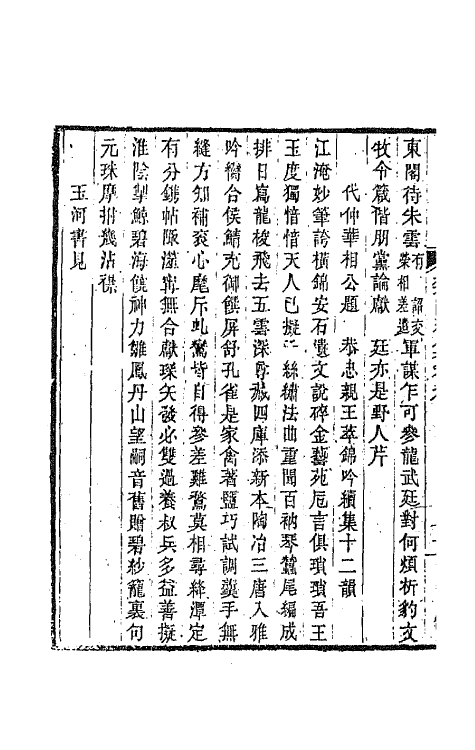 東閣待朱雲有詔交榮相差遣軍謀乍可參龍武廷對何煩析豹文
牧令箴偕朋黨論獻 廷亦是野人芹
代仲華相公題 恭忠親王萃錦吟續集十二韻
江淹妙筆誇橫錦安石遺文說碎金藝苑卮言俱瑣瑣吾王
玉度獨愔愔天人已擬絲繡法曲重聞百衲琴蠆尾編成
排日寫龍梭飛去五雲深尋藏四庫添新本陶冶三唐入雅
吟臠合侯鯖充御饌屏舒孔雀是家禽著鹽巧試調羹手無
縫方知補袞心鳧斥乩鸞皆自得參差雞鶩莫相尋絳潭定
有分鐫帖陬澨甯無合獻琛矢發必雙過養叔兵多益善擬
淮陰掣鯨碧海饒神力雛鳳丹山望嗣音舊贈碧紗籠裏句
元珠摩挲幾沾襟
玉河書見